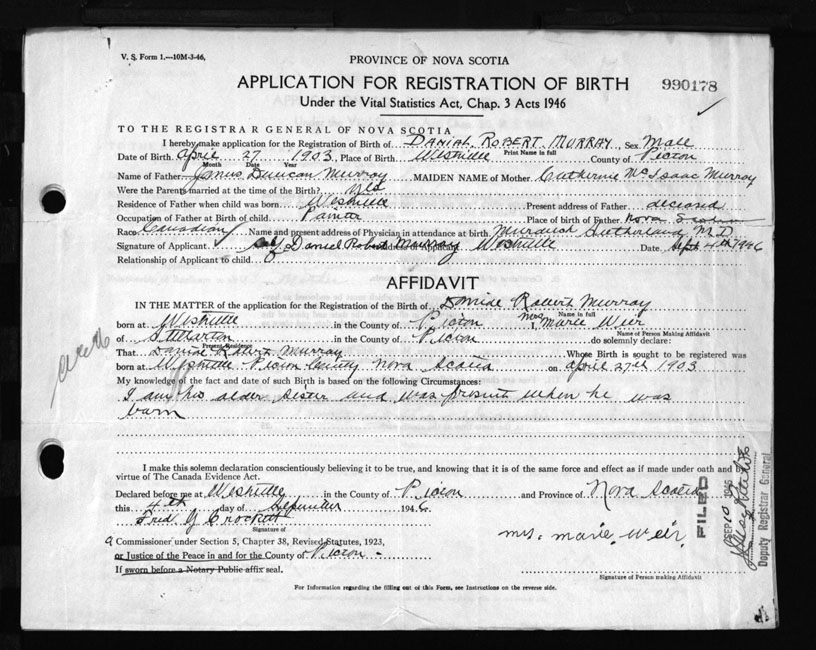 V. S. Form 1.—10M-3-46,
PROVINCE OF NOVA SCOTIA
APPLICATION FOR REGISTRATION OF BIRTH
990178
Under the Vital Statistics Act, Chap. 3 Acts 1946
TO THE REGISTRAR GENERAL OF NOVA SCOTIA
I hereby make application for the Registration of Birth of DANIAL ROBERT MURRAY Sex Male
Print Name in full
Date of Birth April 27 1903, Place of Birth Westville County of Pictou
Month Date Year
Name of Father James Duncan Murray MAIDEN NAME of Mother Catherine McIsaac Murray
Were the Parents married at the time of the Birth? Yes
Residence of Father when child was born Westville Present address of Father deceased
Occupation of Father at Birth of child Painter Place of birth of Father Nova Scotia
Race Canadian Name and present address of Physician in attendance at birth Murdock Sutherland MD
Signature of Applicant Daniel Robert Murray Address of Applicant Westville Date Sept 4th 1946
Relationship of Applicant to child
AFFIDAVIT
IN THE MATTER of the application for the Registration of the Birth of Daniel Robert Murray
Name in full
born at Westville in the County of Pictou Mrs. Marie Weir
Name of Person Making Affidavit
of Stellarton in the County of Pictou do solemnly declare:
Present Residence
That Daniel Robert Murray Whose Birth is sought to be registered was
born at Westville Pictou County Nova Scotia on April 27th 1903
My knowledge of the fact and date of such Birth is based on the following Circumstances:
I am his older sister and was present when he was
born
I make this solemn declaration conscientiously believing it to be true, and knowing that it is of the same force and effect as if made under oath and by
virtue of The Canada Evidence Act.
Declared before me at Westville in the County of Pictou and Province of Nova Scotia
this 4th day of September 1946
Fred J Crockett
Signature of
a Commissioner under Section 5, Chapter 38, Revised Statutes, 1923,
or Justice of the Peace in and for the County of Pictou
If sworn before a Notary Public affix seal.
mrs. marie. weir.
Signature of Person making Affidavit
For Information regarding the filling out of this Form, see Instructions on the reverse side.
FILED
SEP 10 1946
Deputy Registrar General